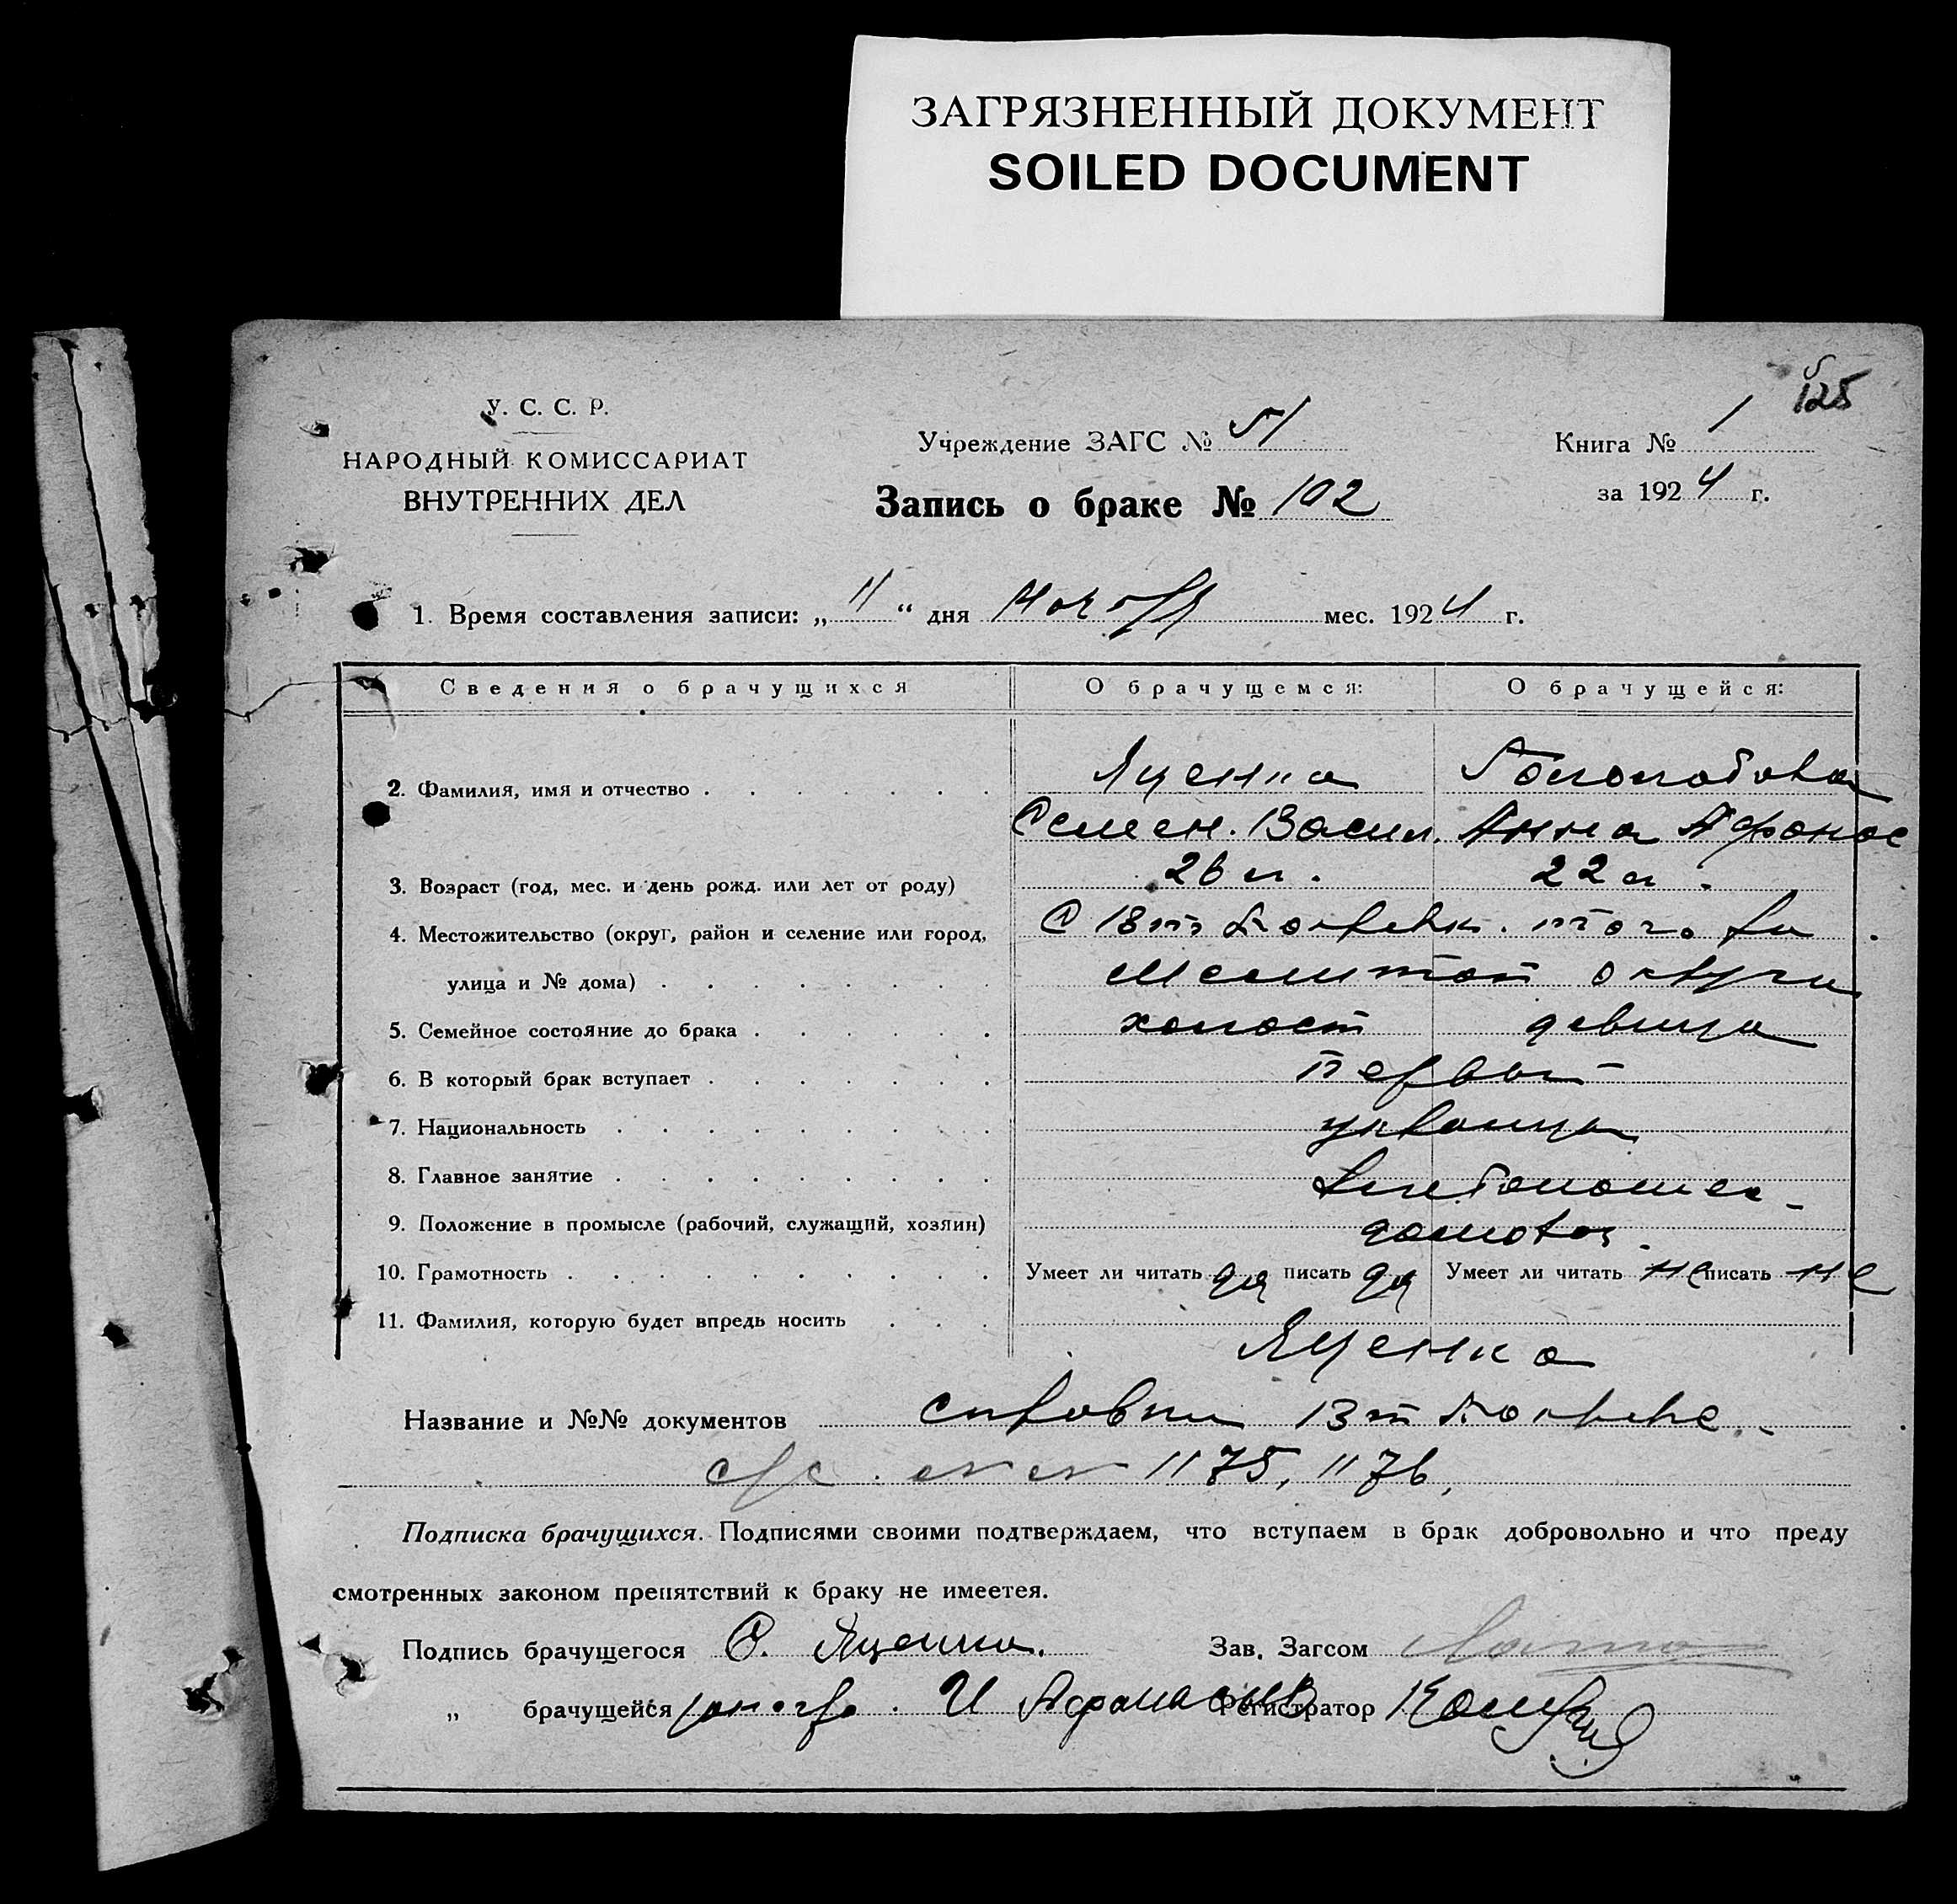 ЗАГРЯЗНЕННЫЙ ДОКУМЕНТ
SOILED DOCUMENT
125
У. С. С. Р.
НАРОДНЫЙ КОМИССАРИАТ
ВНУТРЕННИХ ДЕЛ
Учреждение ЗАГС № 51
Запись о браке № 102
Книга № 1
за 1924 г.
1. Время составления записи: „ 11 “ дня ноября мес. 1924 г.
Сведения о брачущихся О брачущемся: О брачущейся:
2. Фамилия, имя и отчество Яценко
Семен. Васил. Анна Афанас
3. Возраст (год, мес. и день рожд. или лет от роду) 26 л. 22 л.
4. Местожительство (округ, район и селение или город, того же
улица и № дома) Мелитоп округи
5. Семейное состояние до брака холост девица
6. В который брак вступает первый
7. Национальность украинцы
8. Главное занятие хлебопашец
9. Положение в промысле (рабочий, служащий, хозяин)
10. Грамотность Умеет ли читать да писать да Умеет ли читать не писать не
11. Фамилия, которую будет впредь носить
Яценко
Название и №№ документов справки
1175, 1176,
Подписка брачущихся. Подписями своими подтверждаем, что вступаем в брак добровольно и что преду
смотренных законом препятствий к браку не имеетея.
Подпись брачущегося С. Яценко. Зав. Загсом
„ брачущейся Регистратор